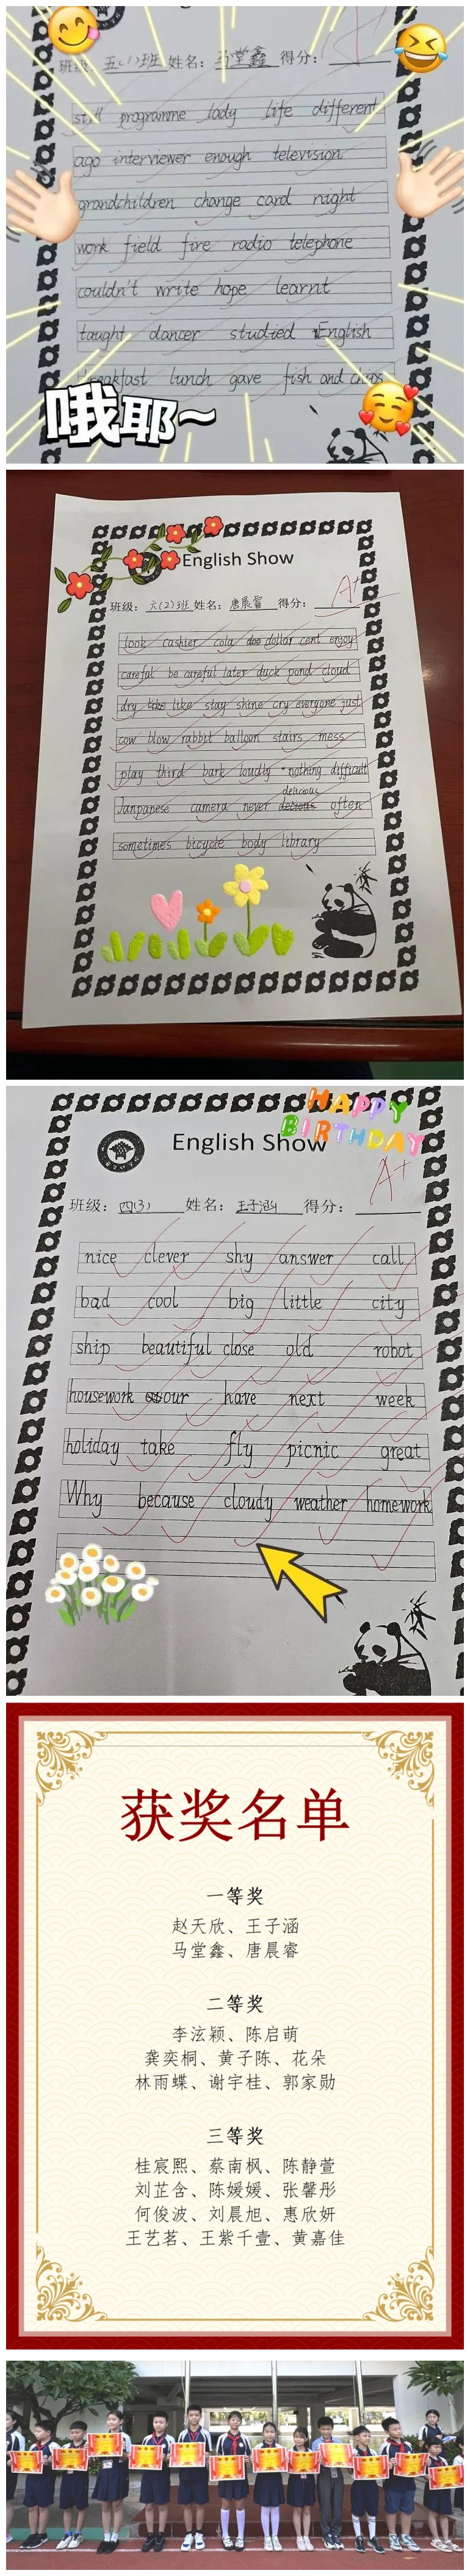 班级: 五(1)班 姓名: 马堂鑫 得分:
still programme lady life different
ago interviewer enough television
grandchildren change card night
work field fire radio telephone
couldn't write hope learnt
taught dancer studied English
breakfast lunch gave fish and chips
哦耶~
English Show
班级: 六(2)班 姓名: 唐晨睿 得分:
A+
look cashier cola dollar cent enjoy
careful be careful later duck pond cloud
dry like stay shine cry everyone just
cow blow rabbit balloon stairs mess
play third bark loudly nothing difficult
delicious
Janpanese camera never often
sometimes bicycle body library
HAPPY
BIRTHDAY
English Show
A+
班级: 四(3) 姓名: 王子涵 得分:
nice clever shy answer call
bad cool big little city
ship beautiful close old robot
housework our have next week
holiday take fly picnic great
Why because cloudy weather homework
获奖名单
一等奖
赵天欣、王子涵
马堂鑫、唐晨睿
二等奖
李泫颖、陈启萌
龚奕桐、黄子陈、花朵
林雨蝶、谢宇桂、郭家勋
三等奖
桂宸熙、蔡南枫、陈静萱
刘芷含、陈媛媛、张馨彤
何俊波、刘晨旭、惠欣妍
王艺茗、王紫千壹、黄嘉佳